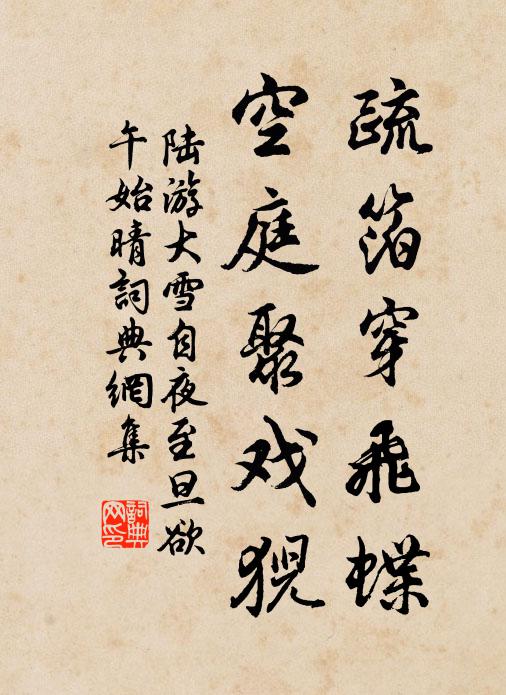 疏箔穿飛蝶
空庭聚戏猊
陆游大雪自夜至旦欲
午始晴詞典網集
詞典网印